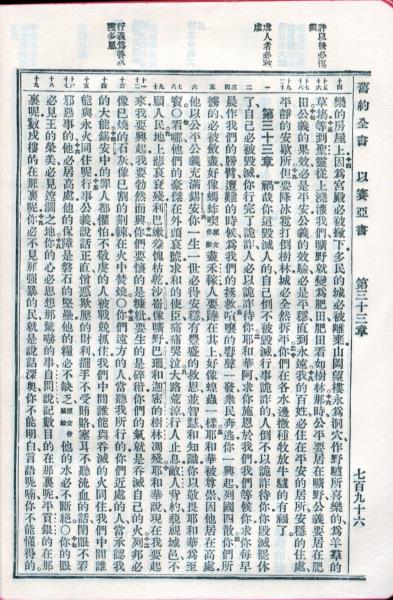 舊約全書 以賽亞書 第三十三章 七百九十六
樂的房屋上因爲宮殿必被撇下多民的城必被離棄山岡望樓永爲洞穴作野驢所喜樂的爲羊羣的
草場等到聖靈從上澆灌我們曠野就變爲肥田肥田看如樹林那時公平要居在曠野公義要居在肥
田公義的果效必是平安公義的效驗必是平穩直到永遠我的百姓必住在平安的居所安穩的住處
平靜的安歇所但要降冰雹打倒樹林城必全然拆平你們在各水邊撒種牧放牛驢的有福了
第三十三章 禍哉你這毀滅人的自己倒不被毀滅行事詭詐的人倒不以詭詐待你你毀滅罷休
了自己必被毀滅你行完了詭詐人必以詭詐待你耶和華阿求你施恩於我們我們等候你求你每早
晨作我們的膀臂遭難的時候爲我們的拯救喧嚷的響聲一發衆民奔逃你一興起列國四散你們所
擄的必被斂盡好像螞蚱喫盡禾稼人要蹦在其上好像蝗蟲一樣耶和華被尊崇因他居在高處
他以公平公義充滿錫安你一生一世必得安穩有豐盛的救恩並智慧和知識你以敬畏耶和華爲至
寶○看哪他們的豪傑在外頭哀號求和的使臣痛痛哭泣大路荒涼行人止息敵人背約藐視城邑不
顧人民地上悲哀衰殘利巴嫩羞愧枯乾沙崙像曠野巴珊和迦密的樹林凋殘耶和華說現在我要起
來我要興起我要勃然而興你們要懷的是糠粃要生的是碎稭你們的氣就是吞滅自己的火列邦必
像已燒的石灰像已割的荊棘在火中焚燒○你們遠方的人當聽我所行的你們近處的人當承認我
的大能錫安中的罪人都懼怕不敬虔的人被戰兢抓住我們中間誰能與吞滅的火同住我們中間誰
能與永火同住呢行事公義說話正直憎惡欺壓的財利擺手不受賄賂塞耳不聽流血的話閉眼不看
邪惡事的他必居高處他的保障是磐石的堅壘他的糧必不缺乏他的水必不斷絕○你的眼
必見王的榮美必見遼闊之地你的心必思想那驚嚇的事自問說記數目的在那裏呢平貢銀的在那
裏呢數戍樓的在那裏呢你必不見那強暴的民就是說話深奧你不能明白言語呢喃你不能懂得的
許以後必復興
虐人者必遭虐
行義爲善必獲多恩